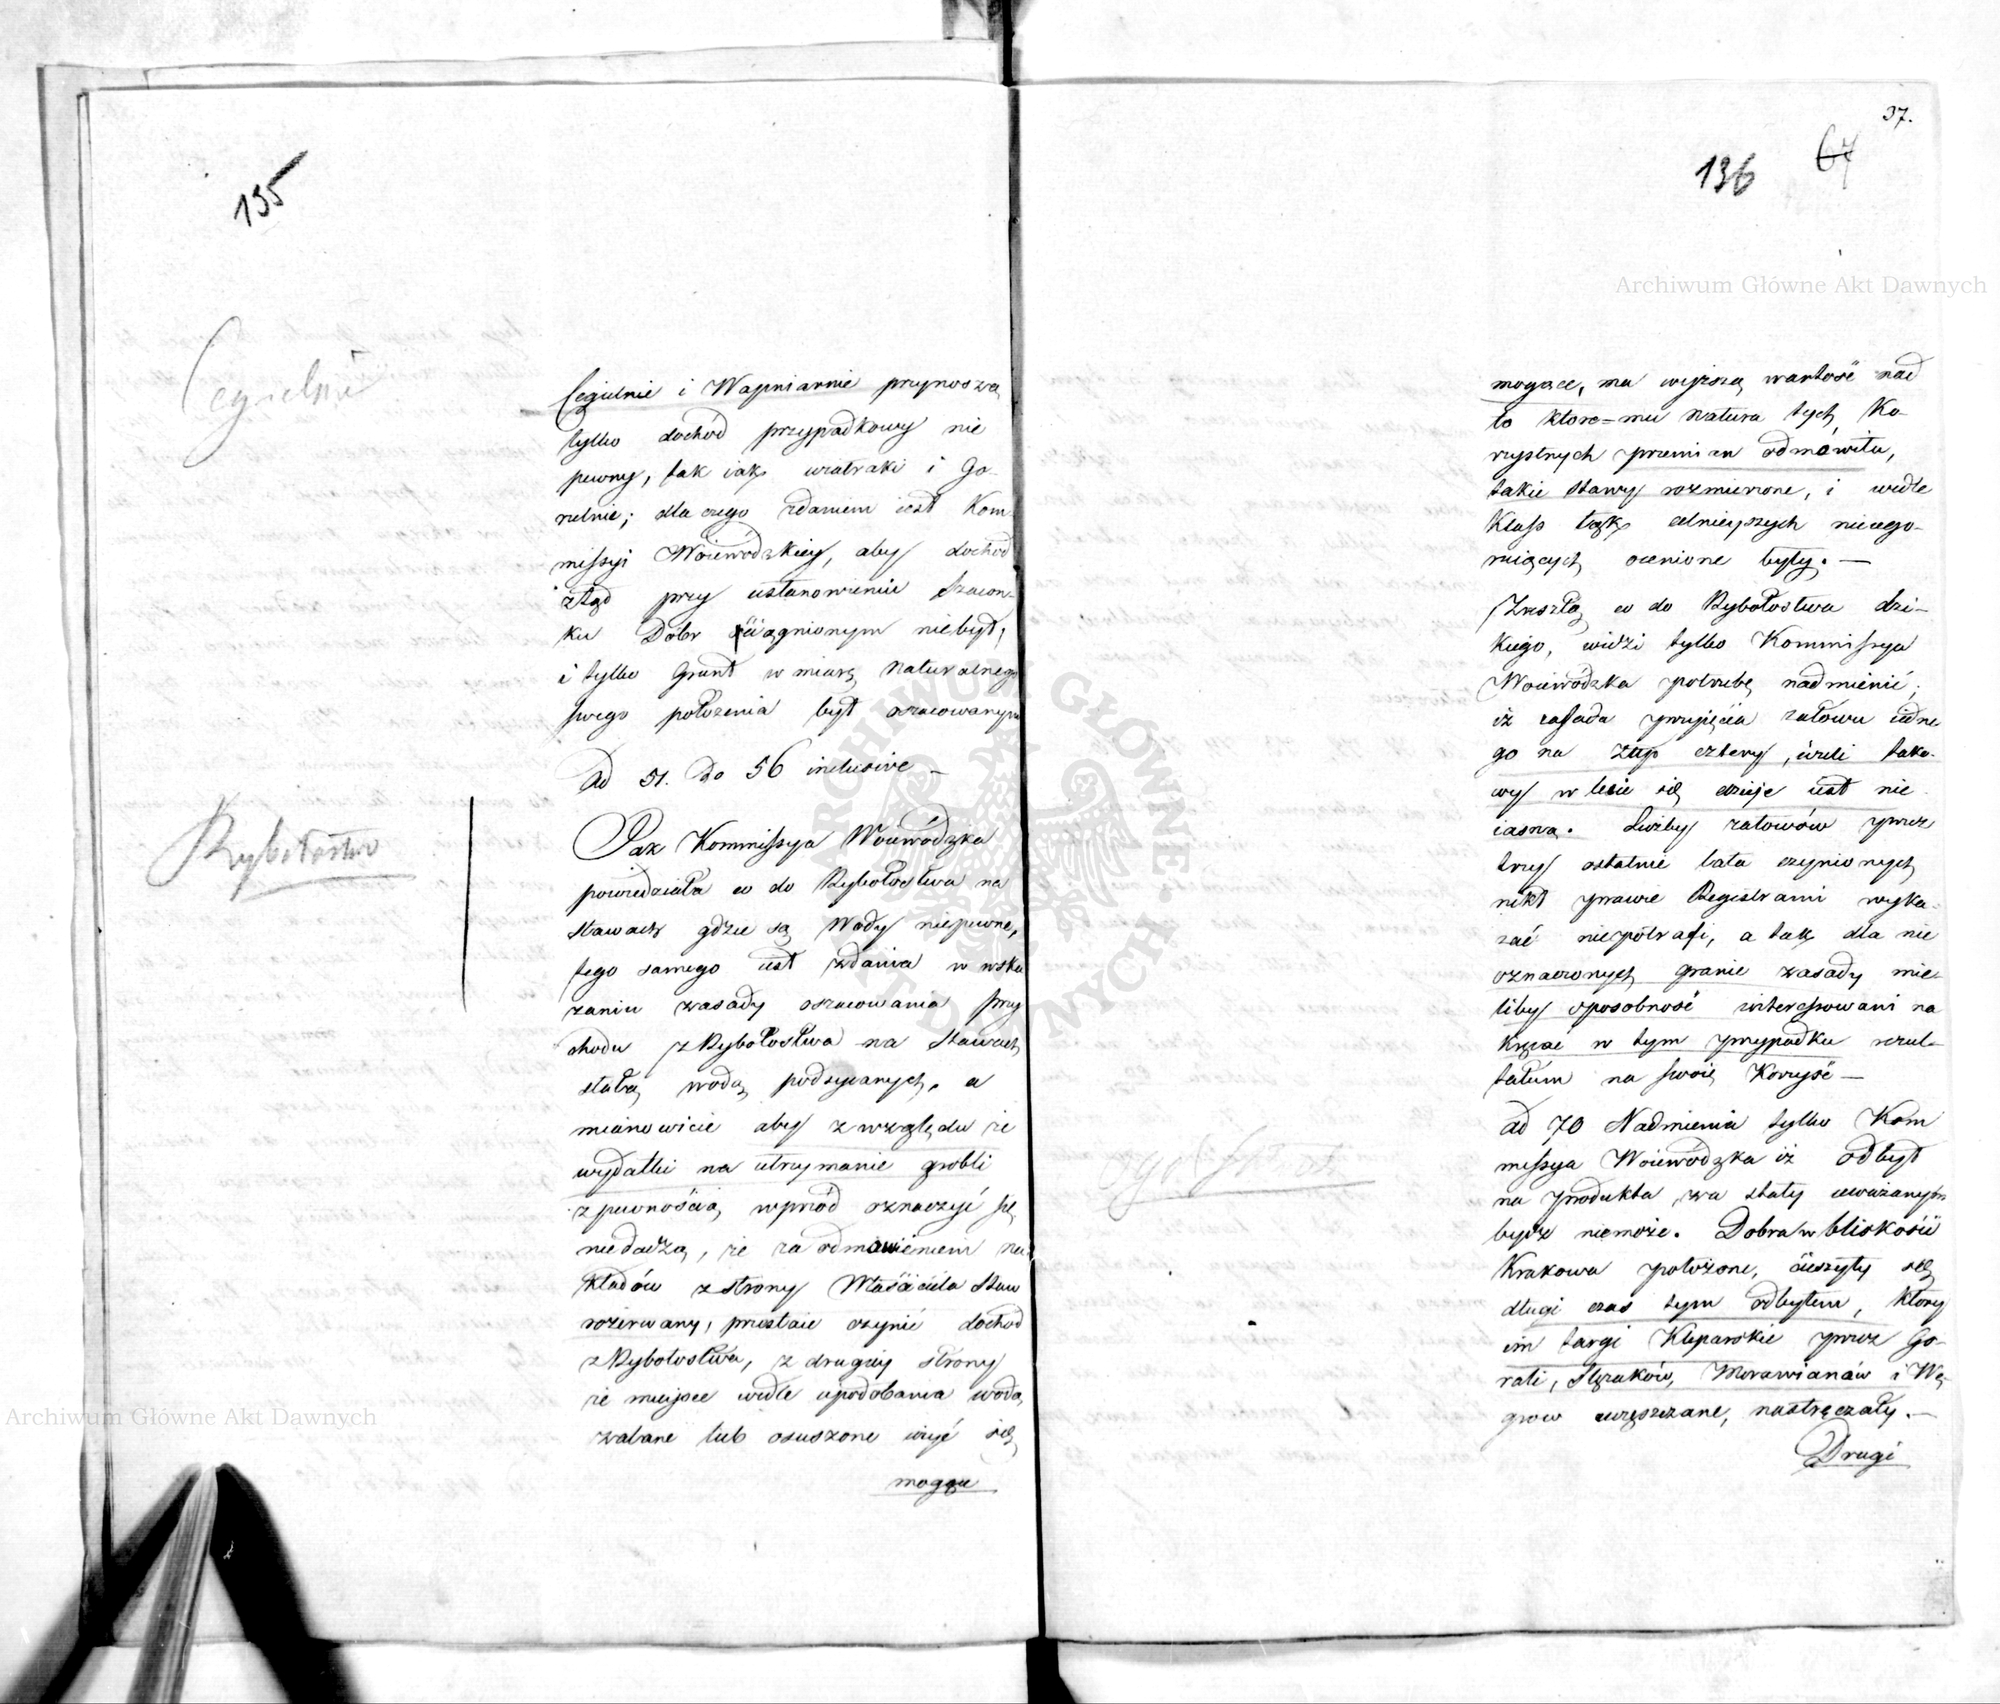 135
Cegielnie
Cegielnie i Wapniarnie przynoszą
tylko dochod przypadkowy nie
pewny, tak iak wiatraki i Go-
rzelnie; dla czego zdaniem iest Kom
missyi Woiewódzkiey, aby dochod
ztąd przy ustanowieniu Szacun-
ku Dobr ściągnionym niebył,
i tylko Grunt w miarę naturalnego
swego położenia był oszacowanym
Ad 51. do 56 inclusive —
Rybołostwo
Jak Kommissya Woiewódzka
powiedziała co do Rybołostwa na
stawach gdzie są Wody niepewne,
tego samego iest zdania w wska
zaniu zasady oszacowania przy
chodu z Rybołostwa na Stawach
stałą wodą podsycanych, a
mianowicie aby z względu że
wydatki na utrzymanie grobli
z pewnością wprzód oznaczyć się
niedadzą, że za odmówieniem na
kładów z strony Właściciela Staw
rozerwany, przestaie czynić dochod
z Rybołostwa, z drugiey strony
że mieysce wedle upodobania wodą
zalane lub osuszone być się
mogące
37.
136 67
Archiwum Główne Akt Dawnych
mogące, ma wyższą wartość nad
to ktore=mu natura tych Ko-
rzystnych przemian odmówiła,
takie stawy rozmierzone, i wedle
Klass łąk celnieyszych nieego-
ruiących ocenione były. —
Zresztą co do Rybołostwa dzi-
kiego, widzi tylko Kommissya
Woiewódzka potrzebę nadmienić;
iż zassada przyięcia załowu iedne
go na zup cztery, ieżeli tako-
wy w lecie się dzieje iest nie
iasną. Liczby załowów przez
trzy ostatnie lata czynionych
nikt prawie Registrami wyka-
zać niepotrafi, a tak dla nie
oznaczonych granic zasady mie-
liby sposobność interessowani na
kręcać w tym przypadku rezul-
tatum na swoię Korzyść —
ogolość
ad 70 Nadmienia tylko Kom
missya Woiewodzka iż odbyt
na produkta za stały uważanym
bydź niemoże. Dobra w bliskości
Krakowa położone, cieszyły się
długi czas tym odbytem, ktory
im targi Kleparskie przez Go-
rali, Slęzaków, Morawianów i Wę-
grow uczęszczane, nastręczały. —
Drugi
Archiwum Główne Akt Dawnych
ARCHIWUM GŁÓWNE AKT DAWNYCH